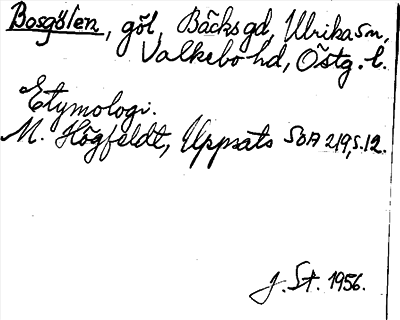 Bosgölen, göl, Bäcks gd, Ulrika sn,
Valkebo hd, Östg. l.
Etymologi.
M. Högfeldt, Uppsats SOA 219, s. 12.
J. St. 1956.